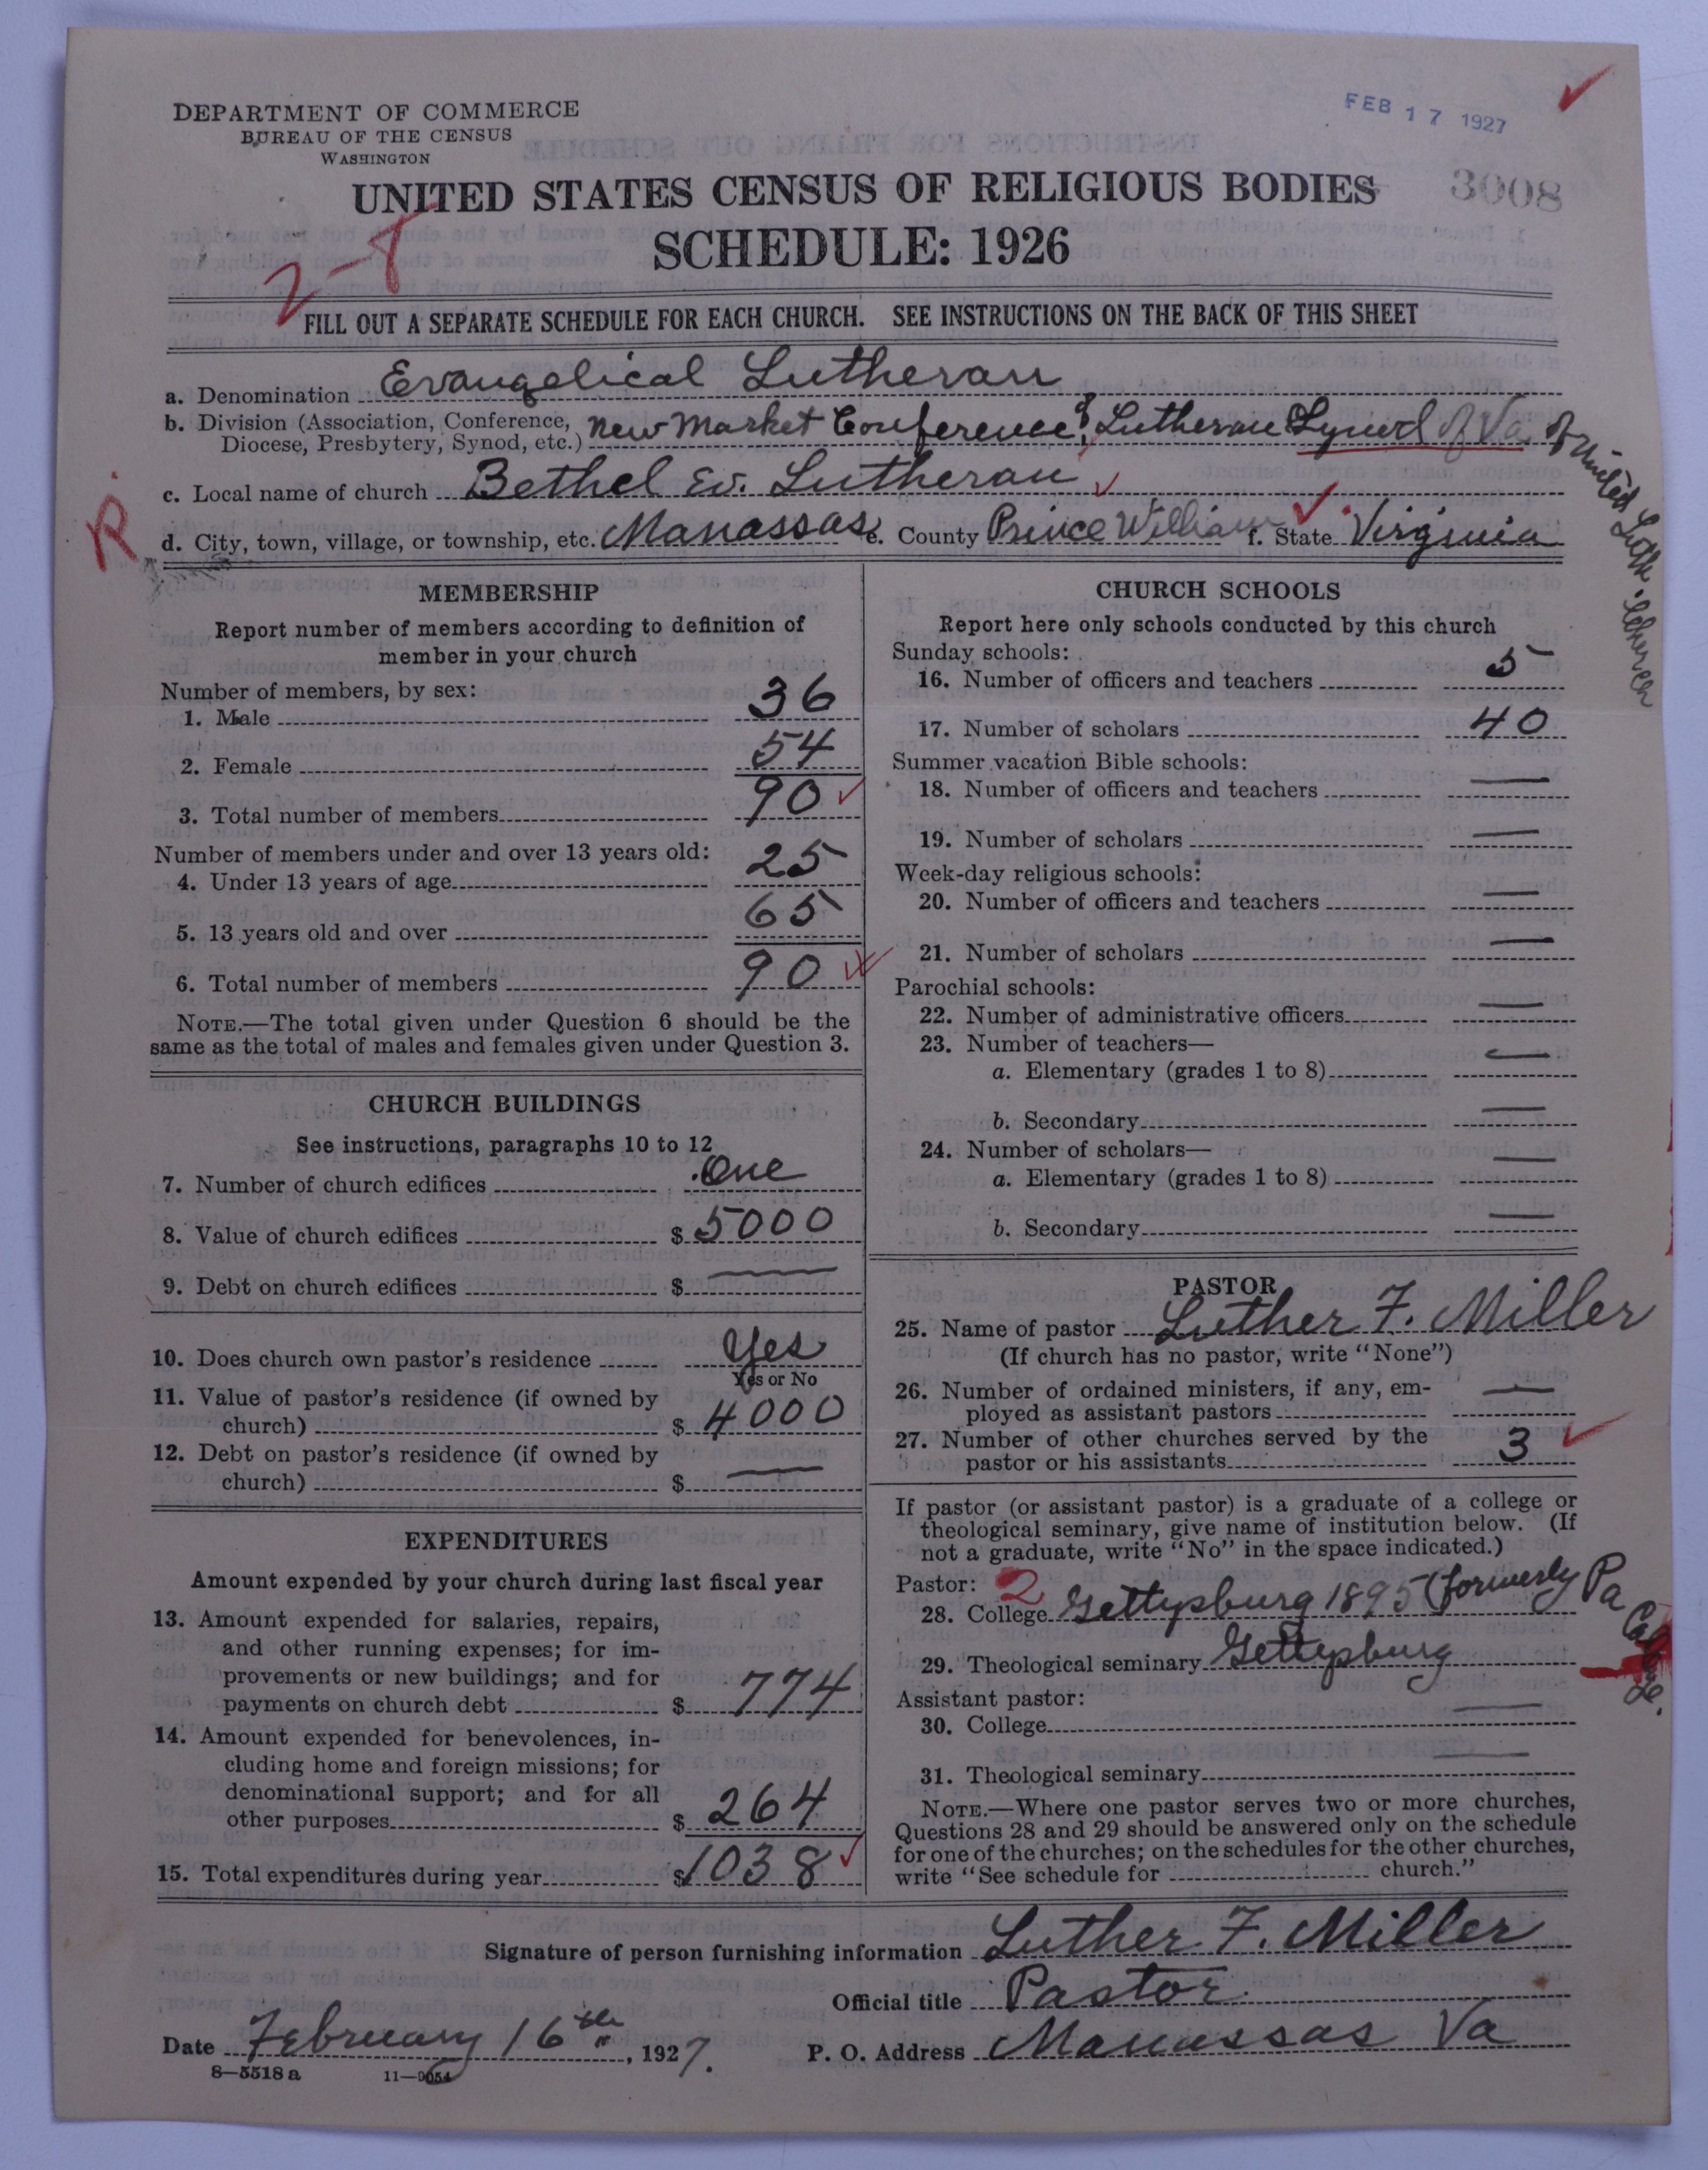 DEPARTMENT OF COMMERCE
BUREAU OF THE CENSUS
WASHINGTON
FEB 17 1927
3008
UNITED STATES CENSUS OF RELIGIOUS BODIES
SCHEDULE: 1926
2-8
FILL OUT A SEPARATE SCHEDULE FOR EACH CHURCH. SEE INSTRUCTIONS ON THE BACK OF THIS SHEET
a. Denomination Evangelical Lutheran
b. Division (Association, Conference, Diocese, Presbytery, Synod, etc.) New Market Conference, Lutheran Synod of Va. of United Luth. Church
c. Local name of church Bethel Ev. Lutheran
R
d. City, town, village, or township, etc. Manassas e. County Prince William f. State Virginia
MEMBERSHIP
Report number of members according to definition of
member in your church
Number of members, by sex:
1. Male 36
2. Female 54
3. Total number of members 90
Number of members under and over 13 years old:
4. Under 13 years of age 25
5. 13 years old and over 65
6. Total number of members 90
NOTE.—The total given under Question 6 should be the
same as the total of males and females given under Question 3.
CHURCH BUILDINGS
See instructions, paragraphs 10 to 12
7. Number of church edifices One
8. Value of church edifices $ 5000
9. Debt on church edifices $ —
10. Does church own pastor's residence Yes
Yes or No
11. Value of pastor's residence (if owned by
church) $ 4000
12. Debt on pastor's residence (if owned by
church) $ —
EXPENDITURES
Amount expended by your church during last fiscal year
13. Amount expended for salaries, repairs,
and other running expenses; for im-
provements or new buildings; and for
payments on church debt $ 774
14. Amount expended for benevolences, in-
cluding home and foreign missions; for
denominational support; and for all
other purposes $ 264
15. Total expenditures during year $ 1038
CHURCH SCHOOLS
Report here only schools conducted by this church
Sunday schools:
16. Number of officers and teachers 5
17. Number of scholars 40
Summer vacation Bible schools:
18. Number of officers and teachers —
19. Number of scholars —
Week-day religious schools:
20. Number of officers and teachers —
21. Number of scholars —
Parochial schools:
22. Number of administrative officers —
23. Number of teachers—
a. Elementary (grades 1 to 8) —
b. Secondary —
24. Number of scholars—
a. Elementary (grades 1 to 8) —
b. Secondary —
PASTOR
25. Name of pastor Luther F. Miller
(If church has no pastor, write "None")
26. Number of ordained ministers, if any, em-
ployed as assistant pastors —
27. Number of other churches served by the
pastor or his assistants 3
If pastor (or assistant pastor) is a graduate of a college or
theological seminary, give name of institution below. (If
not a graduate, write "No" in the space indicated.)
Pastor: 2
28. College Gettysburg 1895 (formerly Pa College.
29. Theological seminary Gettysburg
Assistant pastor:
30. College —
31. Theological seminary —
NOTE.—Where one pastor serves two or more churches,
Questions 28 and 29 should be answered only on the schedule
for one of the churches; on the schedules for the other churches,
write "See schedule for church."
Signature of person furnishing information Luther F. Miller
Official title Pastor
Date February 16th, 1927. P. O. Address Manassas Va
8—5518 a 11—9054